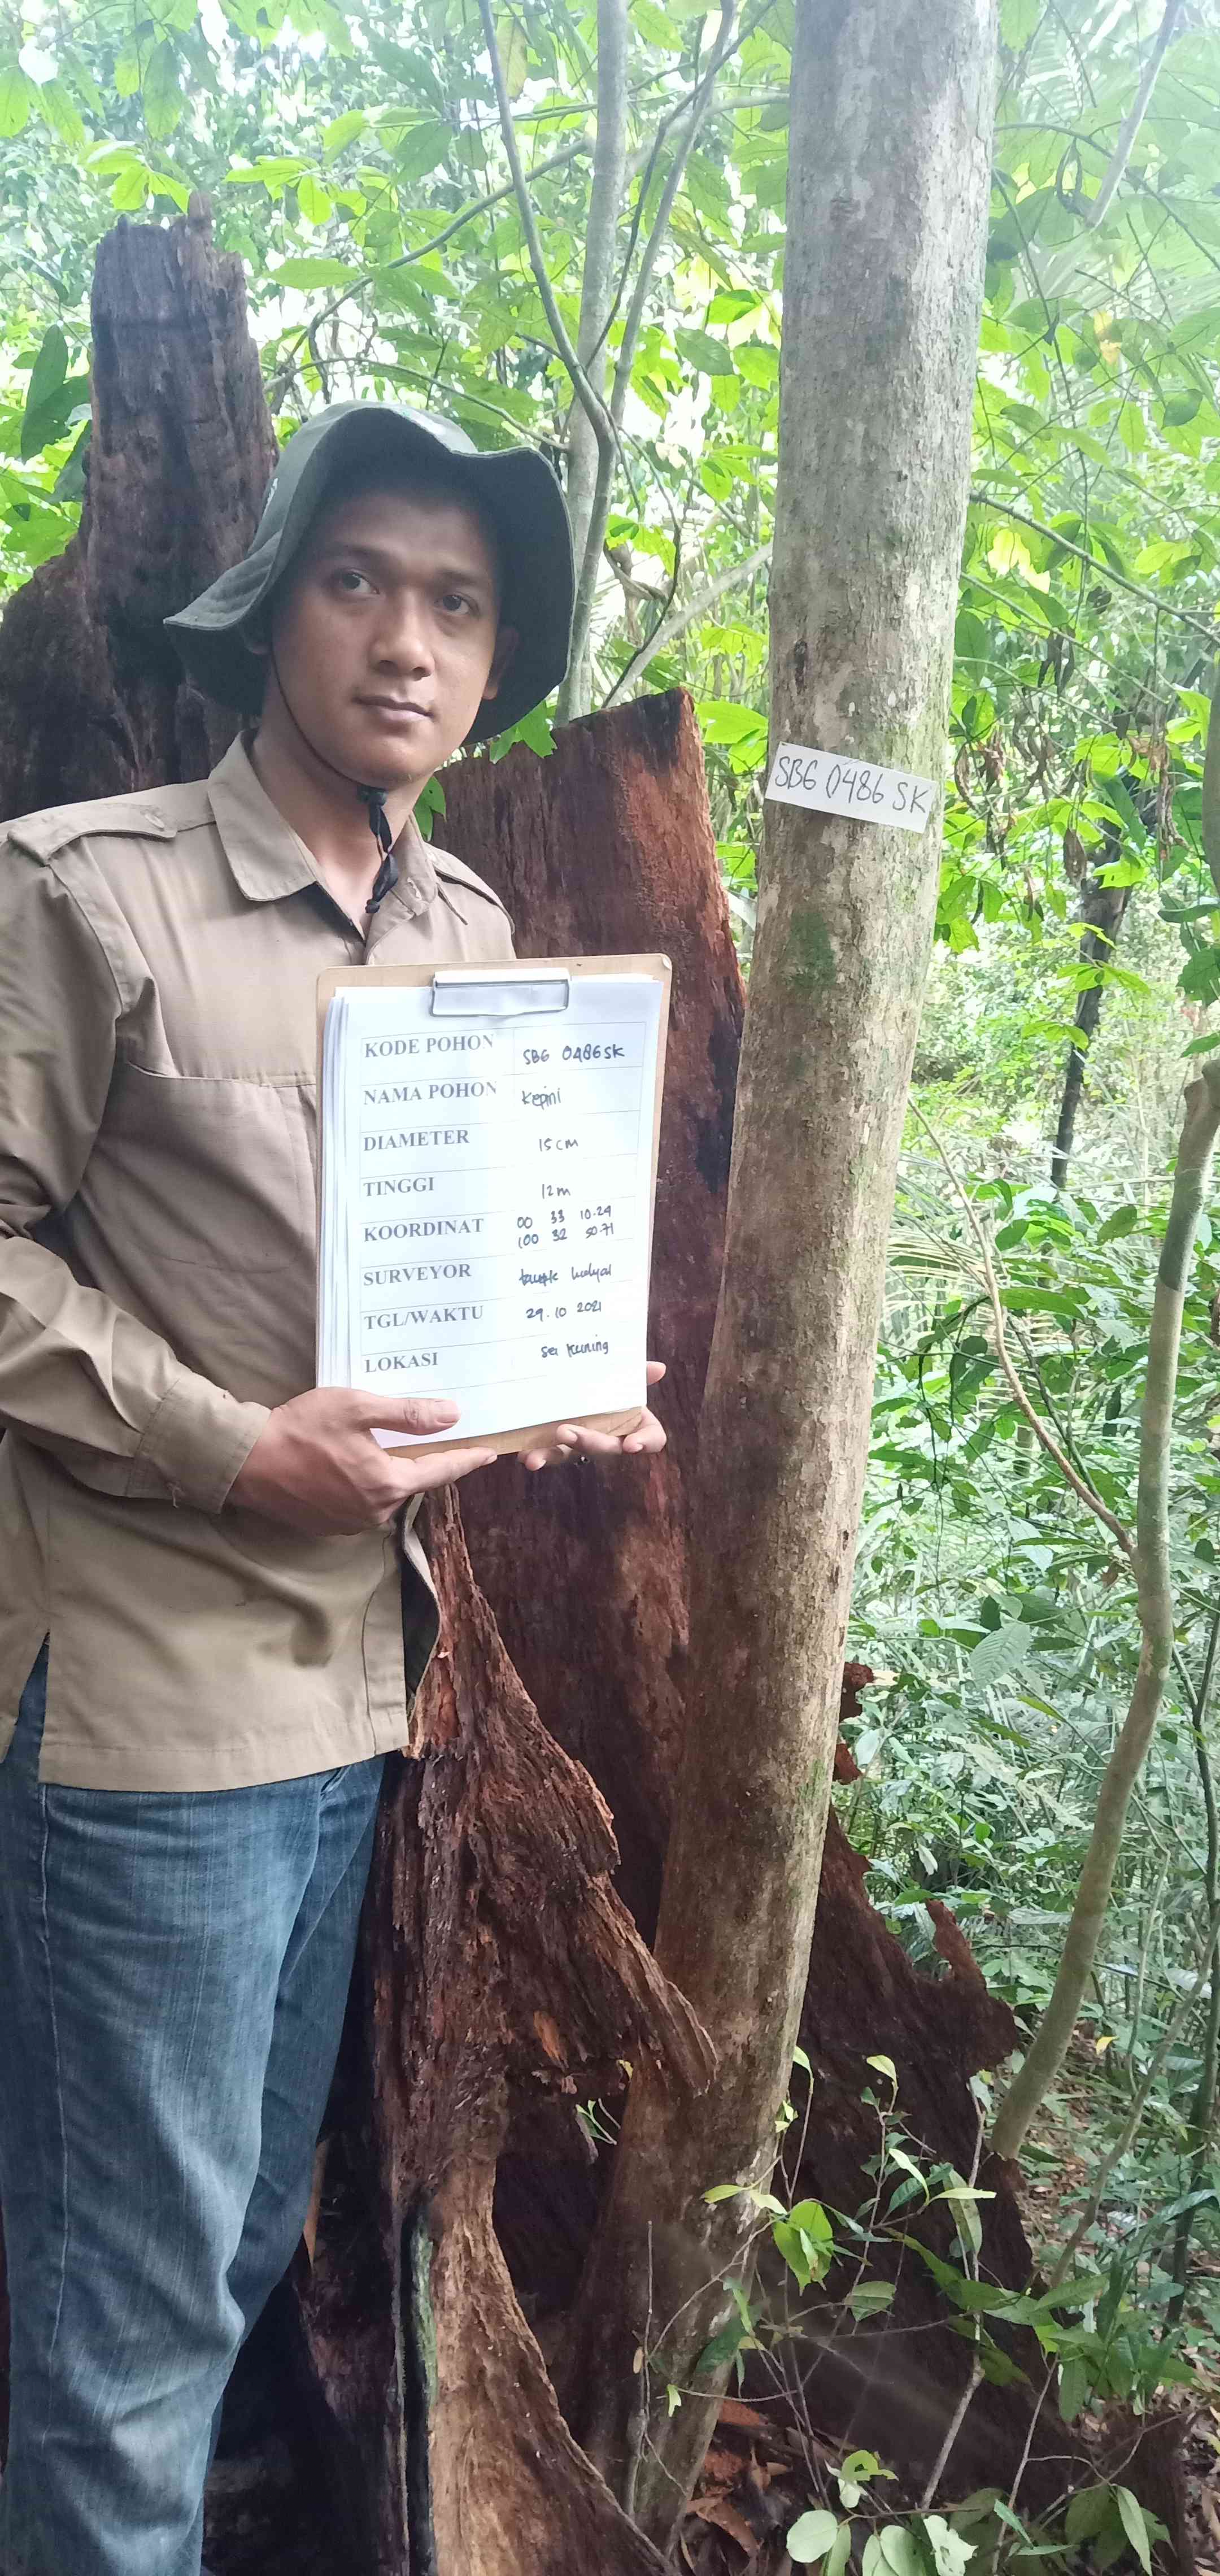 SBG 0486 SK
KODE POHON SBG 0486SK
NAMA POHON
DIAMETER 15 cm
TINGGI 12 m
KOORDINAT 00 33 10.24
100 32 50.71
SURVEYOR
TGL/WAKTU 29.10 2021
LOKASI sei kuning